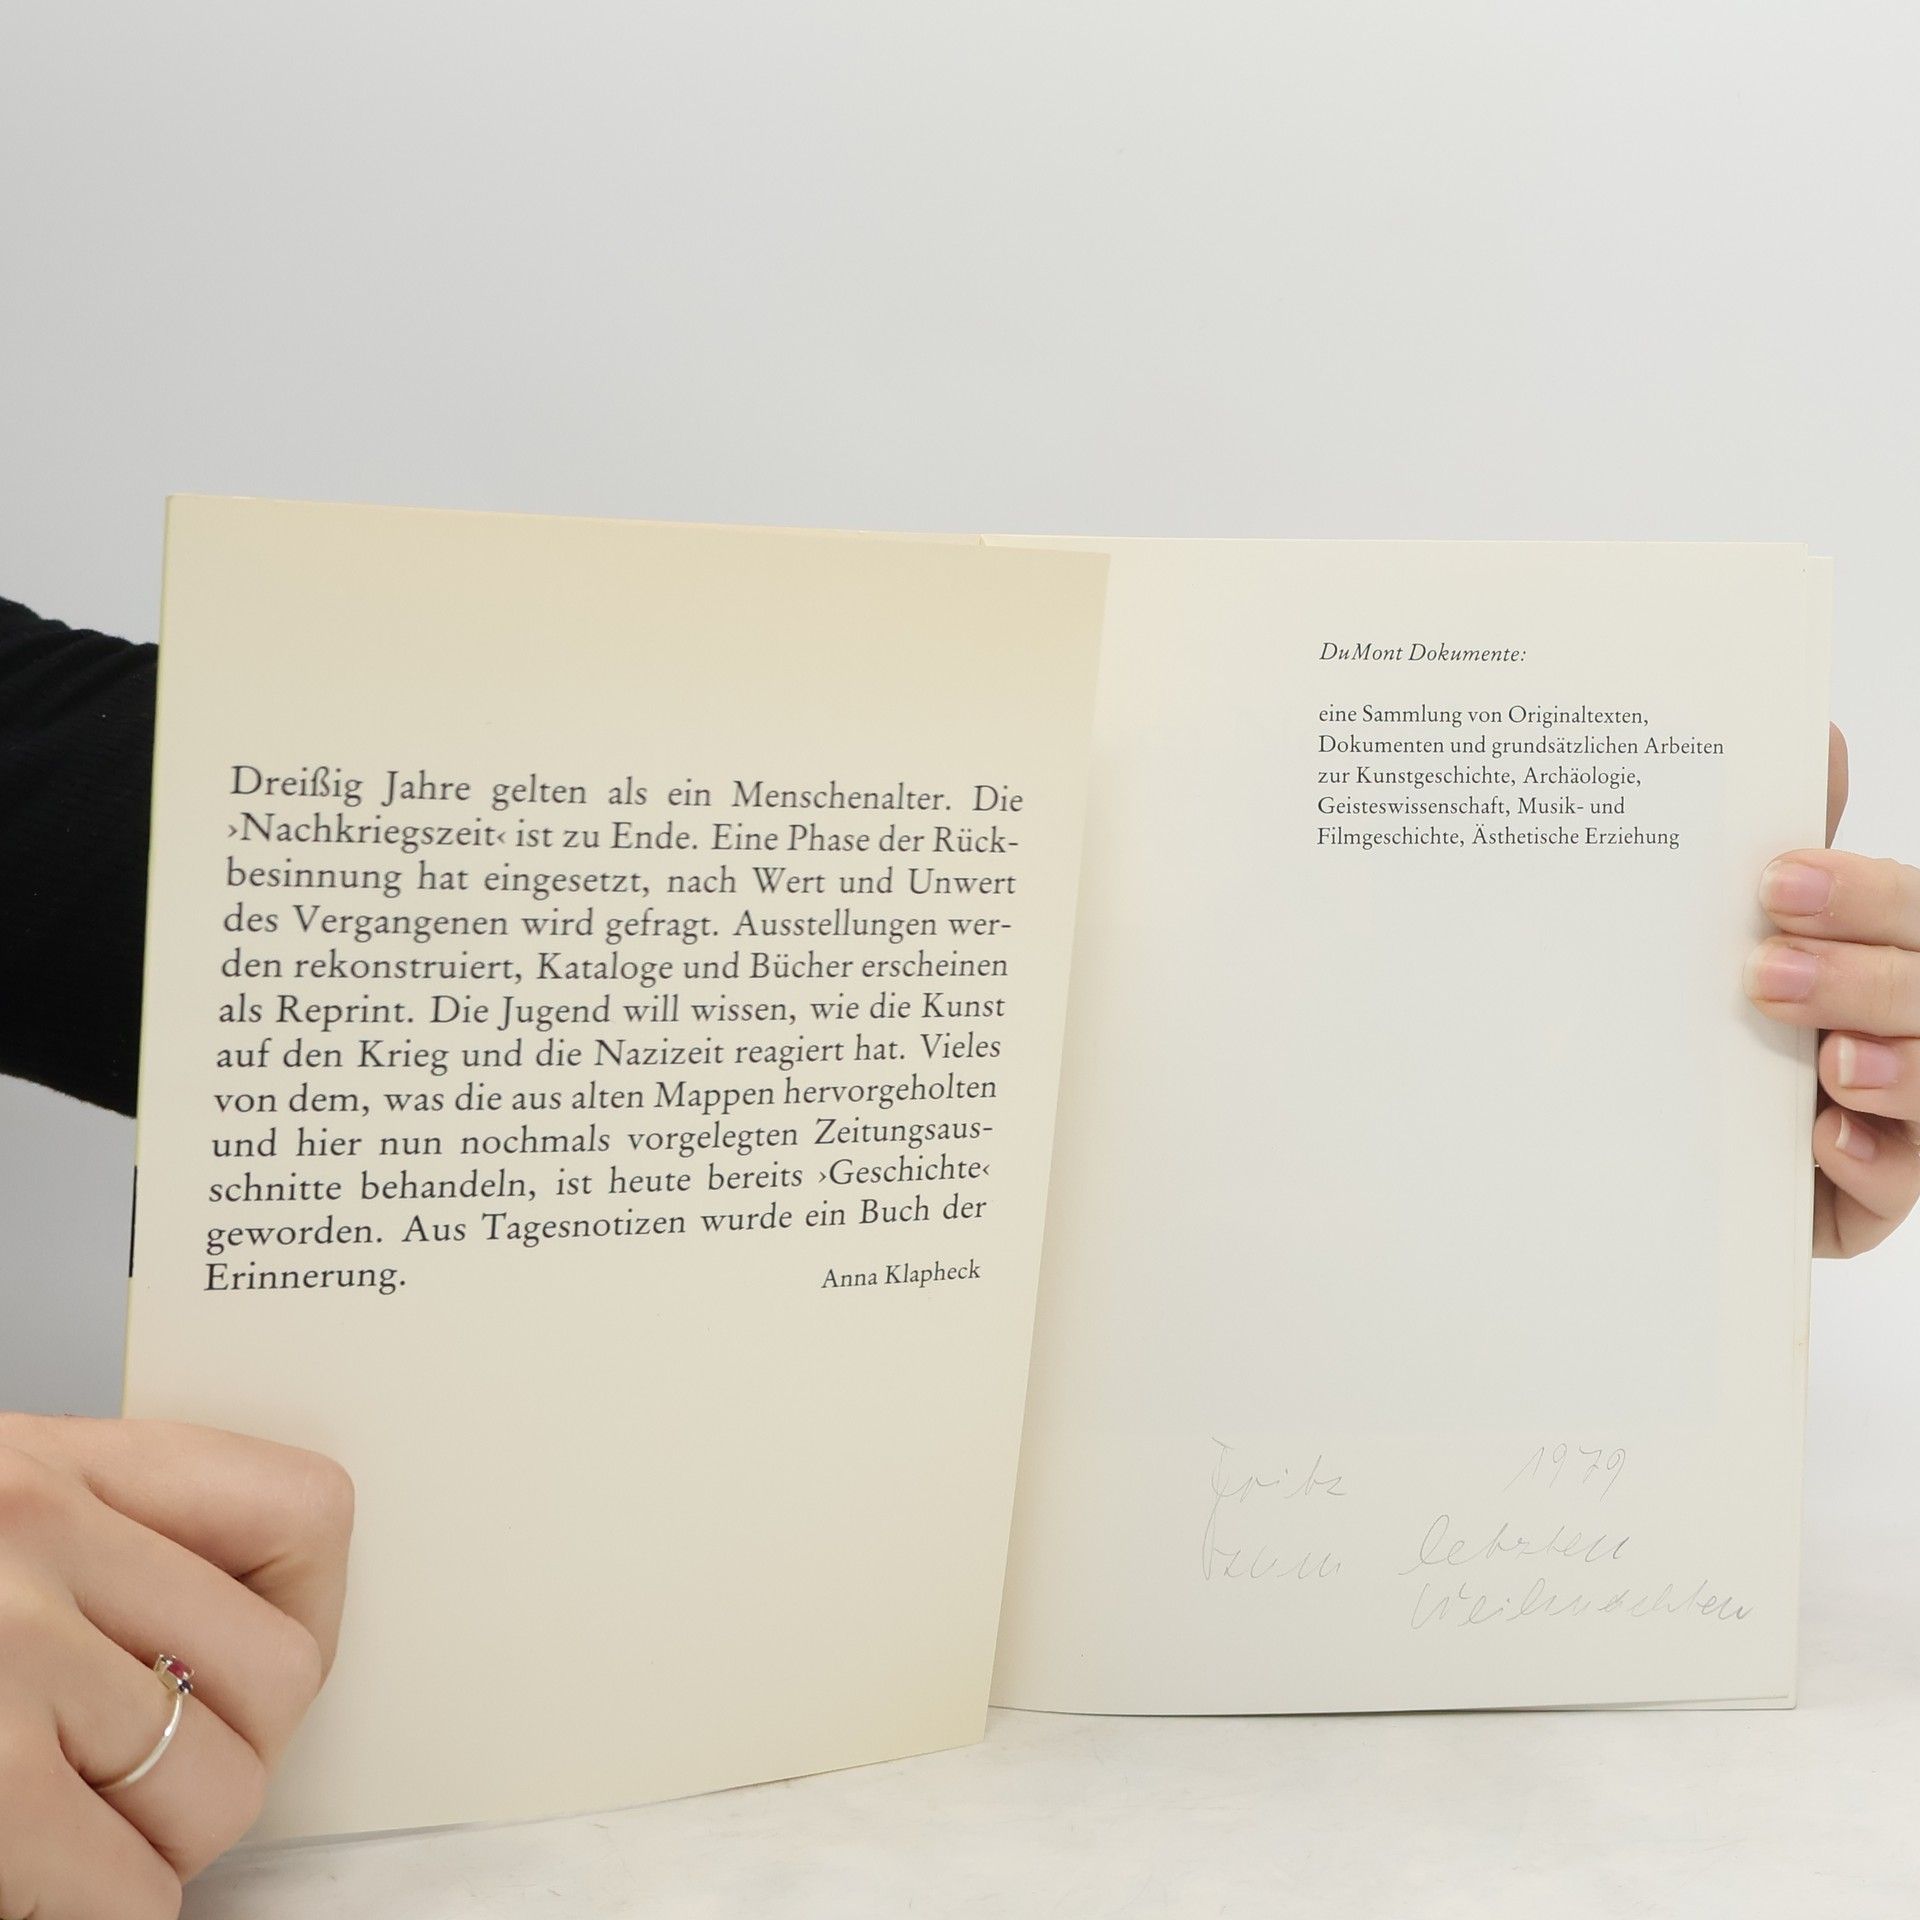 Dreißig Jahre gelten als ein Menschenalter. Die
›Nachkriegszeit‹ ist zu Ende. Eine Phase der Rück-
besinnung hat eingesetzt, nach Wert und Unwert
des Vergangenen wird gefragt. Ausstellungen wer-
den rekonstruiert, Kataloge und Bücher erscheinen
als Reprint. Die Jugend will wissen, wie die Kunst
auf den Krieg und die Nazizeit reagiert hat. Vieles
von dem, was die aus alten Mappen hervorgeholten
und hier nun nochmals vorgelegten Zeitungsaus-
schnitte behandeln, ist heute bereits ›Geschichte‹
geworden. Aus Tagesnotizen wurde ein Buch der
Erinnerung.
Anna Klapheck
DuMont Dokumente:
eine Sammlung von Originaltexten,
Dokumenten und grundsätzlichen Arbeiten
zur Kunstgeschichte, Archäologie,
Geisteswissenschaft, Musik- und
Filmgeschichte, Ästhetische Erziehung
Fritz 1979
zum letzten
Weihnachten